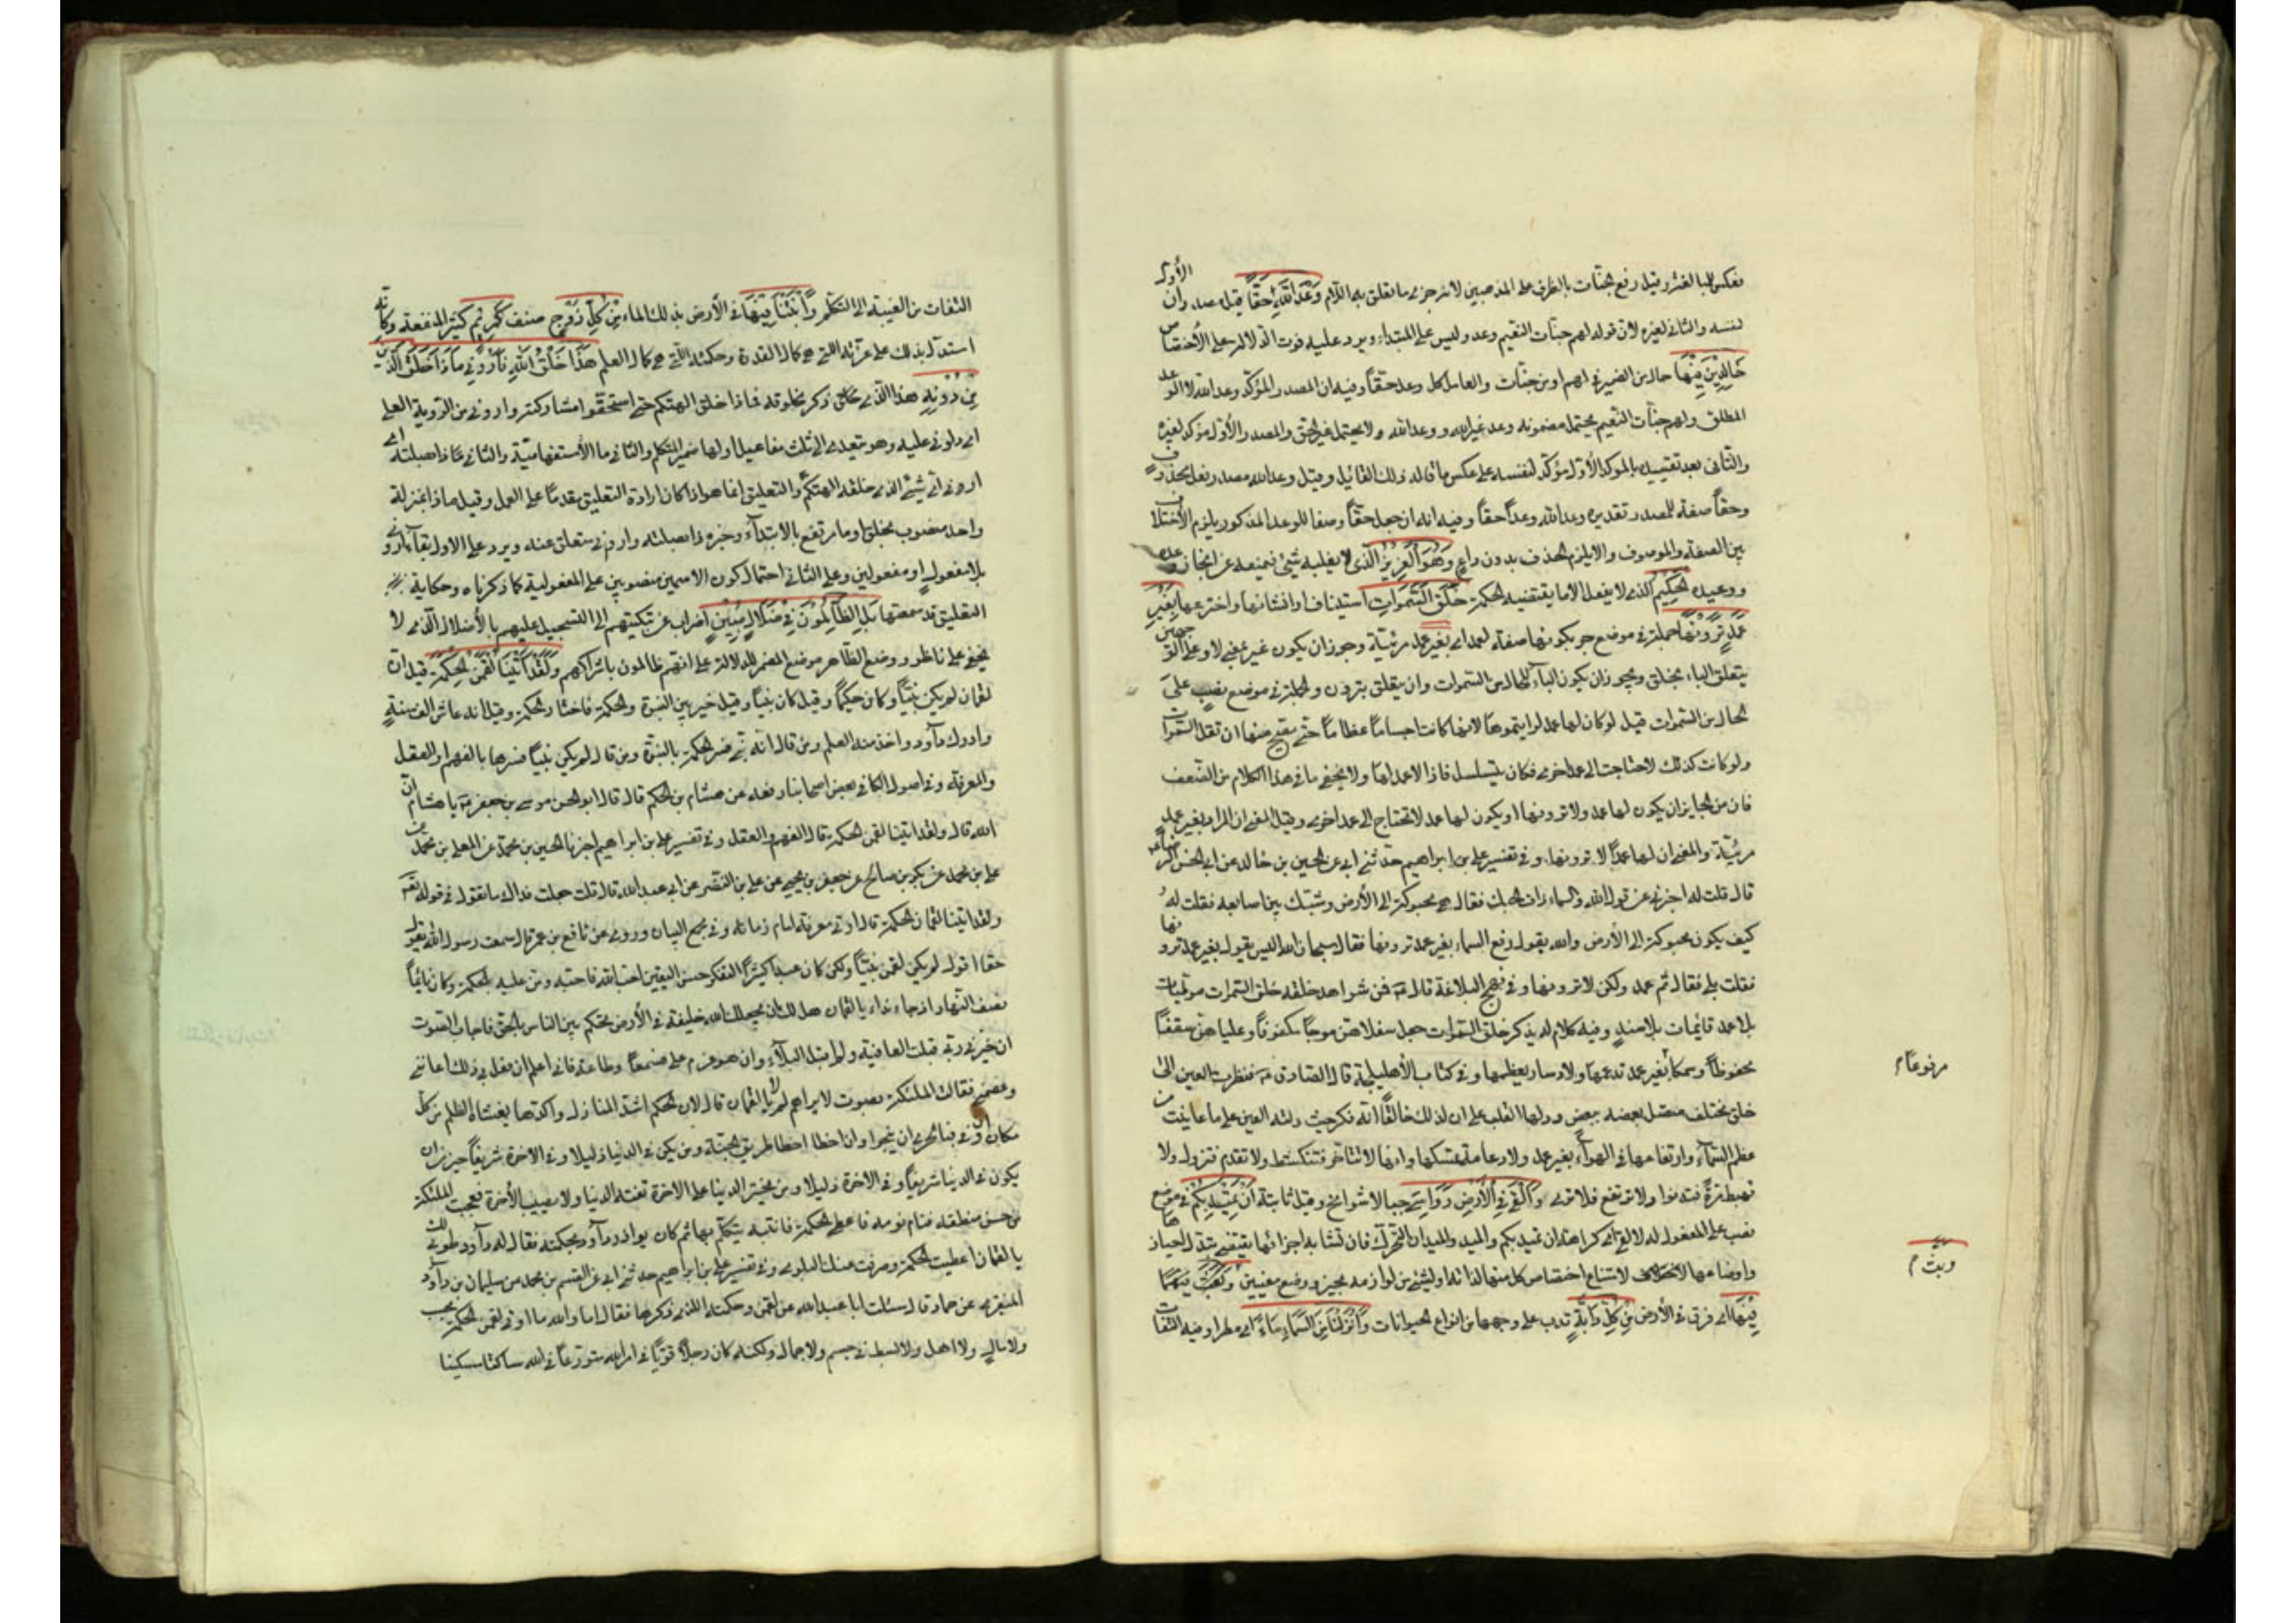 فعكس للمبالغة وقيل رفع جنّات بالظرف على المذهبين لانه جزى ما تعلق به اللام وَعْدَ اللَّهِ حَقًّا قيل مصدران الأول
لنفسه والثانى لغيره لان قوله لهم جنّات النعيم وعد وليس على المبتداء ويرد عليه فوت الدلالة على الأختصاص
خَالِدِينَ فِيهَا حال من الضمير فى لهم او من جنّات والعامل كل وعد حقّاً وفيه ان المصدر المؤكّد وعد الله لا الوعد
المطلق ولهم جنّات النعيم يحتمل مضمونه وعد غير الله ووعد الله ولا يحتمل غير الحق والمصدر الأوّل مؤكد لغيره
والثانى بعد تقييده بالموكد الأوّل مؤكّد لنفسه على عكس ما قاله ذلك القائيل وقيل وعد الله مصدر بفعل محذوف
وحقاً صفة للمصدر تقديره وعد الله وعداً حقاً وفيه انه ان جعل حقاً وصفا للوعد المذكور يلزم الأختلاف
بين الصفة والموصوف والا يلزم الحذف بدون داعٍ وَهُوَ الْعَزِيزُ الّذى لا يغلبه شيئ فيمنعه عن انجاز وعده
ووعيده الْحَكِيمُ الّذى لا يفعل الا ما يقتضيه الحكمة خَلَقَ السَّمٰوَاتِ استيناف او انشائها واخترعها بِغَيْرِ
عَمَدٍ تَرَوْنَهَا جملة فى موضع جر بكونها صفة لعمد اى بغير عمد مرئيّة وجوز ان يكون غير بمعنى لا وعلى الوجهين
يتعلق الباء بخلق ويجوز ان يكون الباء للحال من السّموات وان يتعلق بترون والجملة فى موضع نصب على
الحال من السّموات قيل لو كان لها عمد لرايتموها لانها كانت اجساماً عظاماً حتى يصح منها ان تقل السّموات
ولو كانت كذلك لاحتاجت الى عمد اخرى فكان يتسلسل فاذا لا عمد لها ولا يخفى ما فى هذا الكلام من الضّعف
فان من الجايز ان يكون لها عمد ولا ترونها او يكون لها عمد لا تحتاج الى عمد اخرى وقيل المعنى ان المراد بغير عمد
مرئيّة والمعنى ان لها عمداً لا ترونها وفى تفسير على بن ابراهيم حدثنى ابى عن الحسين بن خالد عن ابى الحسن الرضا
قال قلت له اخبرنى عن قول الله والسماء ذات الحبك فقال هى محبوكة الى الأرض وشبّك بين اصابعه فقلت له
كيف يكون محبوكة الى الأرض والله يقول رفع السماء بغير عمد ترونها فقال سبحان الله اليس يقول بغير عمد ترونها
فقلت بلى فقال ثم عمد ولكن لا ترونها وفى نهج البلاغة قال فمن شواهد خلقه خلق السّموات موطّدات
بلا عمد قائيمات بلا سند وفيه كلام له يذكر خلق السّموات جعل سفلاهن موجاً مكفوفاً وعلياهن سقفاً
محفوظاً وسمكاً بغير عمد تدعمها ولا دسار ينظمها وفى كتاب الأهليلجة قال الصّادق فنظرت العين الى
مرفوعاً م
خلق مختلف متصل بعضه ببعض ودلها القلب على ان لذلك خالقاً انه فكر حيث دلته العين على ما عاينت من
عظم السّماء وارتفاعها فى الهواء بغير عمد ولا دعامة يمسكها وانها لا تتاخر فتنكشط ولا تتقدم فتزول ولا
تهبط مرّة فتدنوا ولا ترتفع فلا ترى وَأَلْقَىٰ فِي الْأَرْضِ رَوَاسِيَ جبالا شوامخ وقيل ثابتة أَنْ تَمِيدَ بِكُمْ فى موضع
نصب على المفعول له لالقى اى كراهة ان تميد بكم والميد والميدان التحرّك فان تشابه اجزائها يقتضى تبدل احيازها
واوضاعها لامتناع اختصاص كل منها لذاته او لشيئ من لوازمه بحيز ووضع معينين وَبَثَّ فِيهَا
وبث م
فِيهَا اى فرق فى الأرض مِنْ كُلِّ دَابَّةٍ تدب على وجهها من انواع الحيوانات وَأَنْزَلْنَا مِنَ السَّمَاءِ مَاءً اى مطرا وفيه التفات
التفات من الغيبة الى التكلم وَأَنْبَتْنَا فِيهَا فى الأرض بذلك الماء مِنْ كُلِّ زَوْجٍ صنف كَرِيمٍ كثير المنفعة وكانه
استدل بذلك على عزّته التى هى كمال القدرة وحكمته الّتى هى كمال العلم هَذَا خَلْقُ اللَّهِ فَأَرُونِي مَاذَا خَلَقَ الَّذِينَ
مِنْ دُونِهِ هذا الّذى ذكر مخلوقه فماذا خلق الهتكم حتى استحقوا مشاركته وارونى من الرّوية العلم
اى دلونى عليه وهو متعدى الى ثلث مفاعيل اولها ضمير المتكلم والثانى ما الأستفهاميّة والثانى ذا بصلته اى
ارونى اى شيئ الذى خلقه الهتكم والتعليق انما هو اذا كان ارادة التعليق مقدماً على العمل وقيل ماذا بمنزلة
واحد منصوب بخلق او ما مرتفع بالابتداء وخبره ذا بصلته وارونى متعلق عنه ويرد على الاول بقاء ارونى
بلا مفعولٍ او مفعولين وعلى الثانى احتمال كون الاسمين منصوبين على المفعولية كما ذكرناه وحكاية
التعليق قد سمعتها بَلِ الظَّالِمُونَ فِي ضَلَالٍ مُبِينٍ اضراب عن تبكيتهم الى التسجيل عليهم بالأضلال الّذى لا
يخفى على ناظر ووضع الظّاهر موضع المضمر للدلالة على انهم ظالمون باشراكهم وَلَقَدْ آتَيْنَا لُقْمٰنَ الْحِكْمَةَ قيل ان
لقمان لم يكن نبيّاً وكان حكيماً وقيل كان نبيّاً وقيل خير بين النبوة والحكمة فاختار الحكمة وقيل انه عاش الف سنةٍ
وادرك داود واخذ منه العلم ومن قال انه نبى فسر الحكمة بالنبوّة ومن قال لم يكن نبيّاً فسرها بالفهم والعقل
والمعرفة وفى اصول الكافى بعض اصحابنا رفعه عن هشام بن الحكم قال قال ابو الحسن موسى بن جعفر يا هشام انّ
الله قال ولقد اتينا لقمن الحكمة قال الفهم والعقل وفى تفسير على بن ابراهيم اخبرنا الحسين بن محمّد عن المعلى بن محمّد عن
على بن محمد عن بكر بن صالح عن جعفر بن يحيى عن على بن النضر عن ابى عبد الله قال قلت جعلت فداك ما تقول فى قوله تعالى
ولقد اتينا لقمان الحكمة قال اوتى معرفة امام زمانه وفى مجمع البيان وروى عن نافع بن عمر قال سمعت رسول الله يقول
حقا اقول لم يكن لقمن نبيّاً ولكن كان عبداً كثيراً التفكر حسن اليقين احب الله فاحبّه ومن عليه بالحكمة وكان نائماً
نصف النّهار اذ جاءه نداء يا لقمان هل لك ان يجعلك الله خليفة فى الأرض تحكم بين الناس بالحق فاجاب الصّوت
ان خيرنى ربى قبلت العافية ولم اقبل البلاء وان هو عزم على فسمعاً وطاعة فانى اعلم ان فعل بى ذلك اعاننى
وعصمنى فقالت الملئكة بصوت لا يراهم لم يا لقمان قال لان الحكم اشد المنازل واكدها يغشاه الظلم من كل
مكان ان وفى فبالحرى ان ينجوا وان اخطا اخطا طريق الجنّة ومن يكن فى الدنيا ذليلا وفى الاخرة شريفاً خير من ان
يكون فى الدنيا شريفاً وفى الاخرة ذليلا ومن يختر الدنيا على الاخرة تفته الدنيا ولا يصيب الأخرة فعجبت الملئكة
من حسن منطقه فنام نومة فاعطى الحكمة فانتبه يتكلّم بها ثم كان يوازر داود بحكمته فقال له داود طوبى لك
يا لقمان اعطيت الحكمة وصرفت عنك البلوى وفى تفسير على بن ابراهيم حدثنى ابى عن القسم بن محمد عن سليمان بن داود
المنقرى عن حماد قال سئلت ابا عبد الله عن لقمن وحكمته التى ذكرها فقال اما والله ما اوتى لقمن الحكمة بحسب
ولا مالٍ ولا اهل ولا بسط فى جسم ولا جمال ولكنه كان رجلاً قويّاً فى امر الله متورعاً فى الله ساكتا سكينا